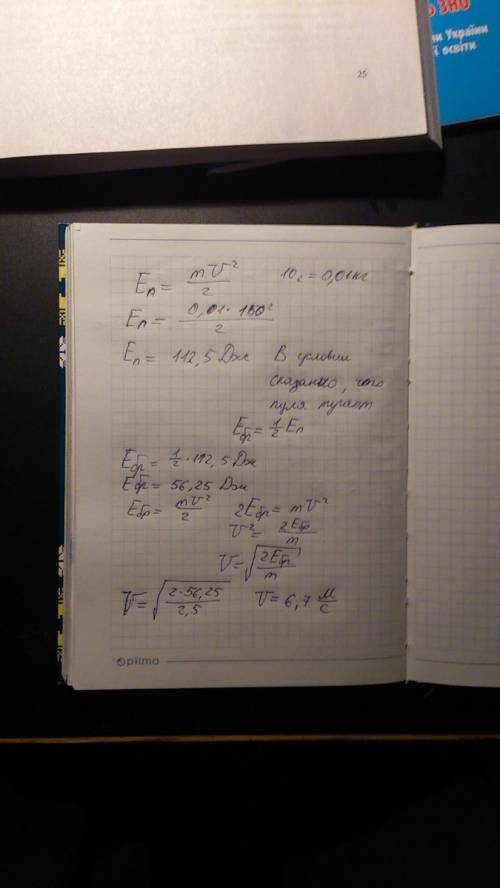 25
ЗНО
України
освіти
Eп = mV²/2    10г = 0,01кг
Eп = 0,01·150²/2
Eп = 112,5 Дж    В условии
сказанно, что
пуля
Eбр = 1/2 Eп
Eбр = 1/2 · 112,5 Дж
Eбр = 56,25 Дж
Eбр = mV²/2    2Eбр = mV²
V² = 2Eбр/m
V = √(2Eбр/m)
V = √(2·56,25/2,5)    V = 6,7 м/с
Optima